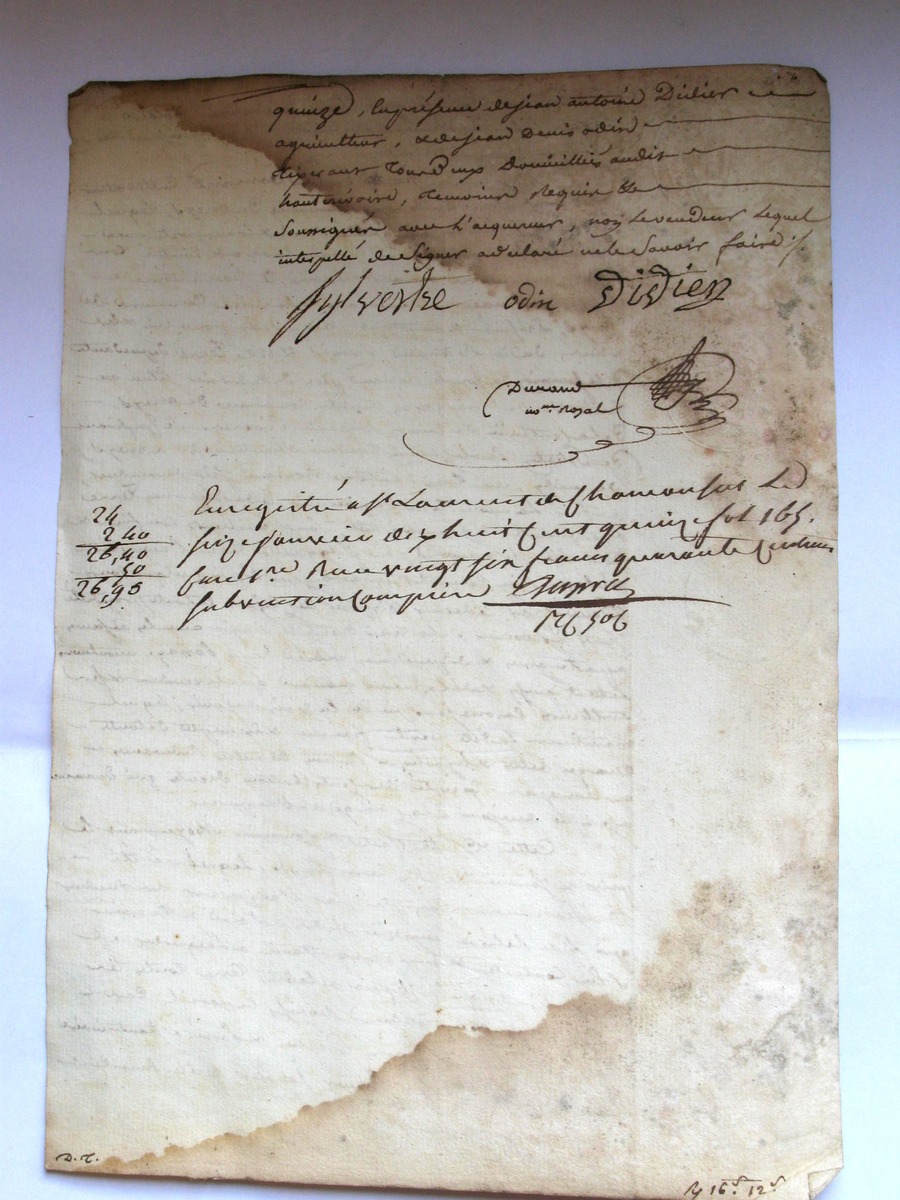 quinze, en présence de jean antoine Didier
agriculteur, & de jean denis odin
tisserant tous deux Domiciliés audit
hauterivoire, temoins Requis &
Soussignés avec l'acquereur, non le vendeur lequel
interpellé de Signer a declaré ne le Savoir faire ./.
Sylvestre odin Didier
Durand
no.re Royal
Enregistré a St Laurent de Chamousset Le
seize janvier dix huit Cent quinze fol 165.
Case 1re Recu vingt six francs quarante Centimes
subvention Comprise
24
2 40
26,40
50
26,90
D. T.
16 12